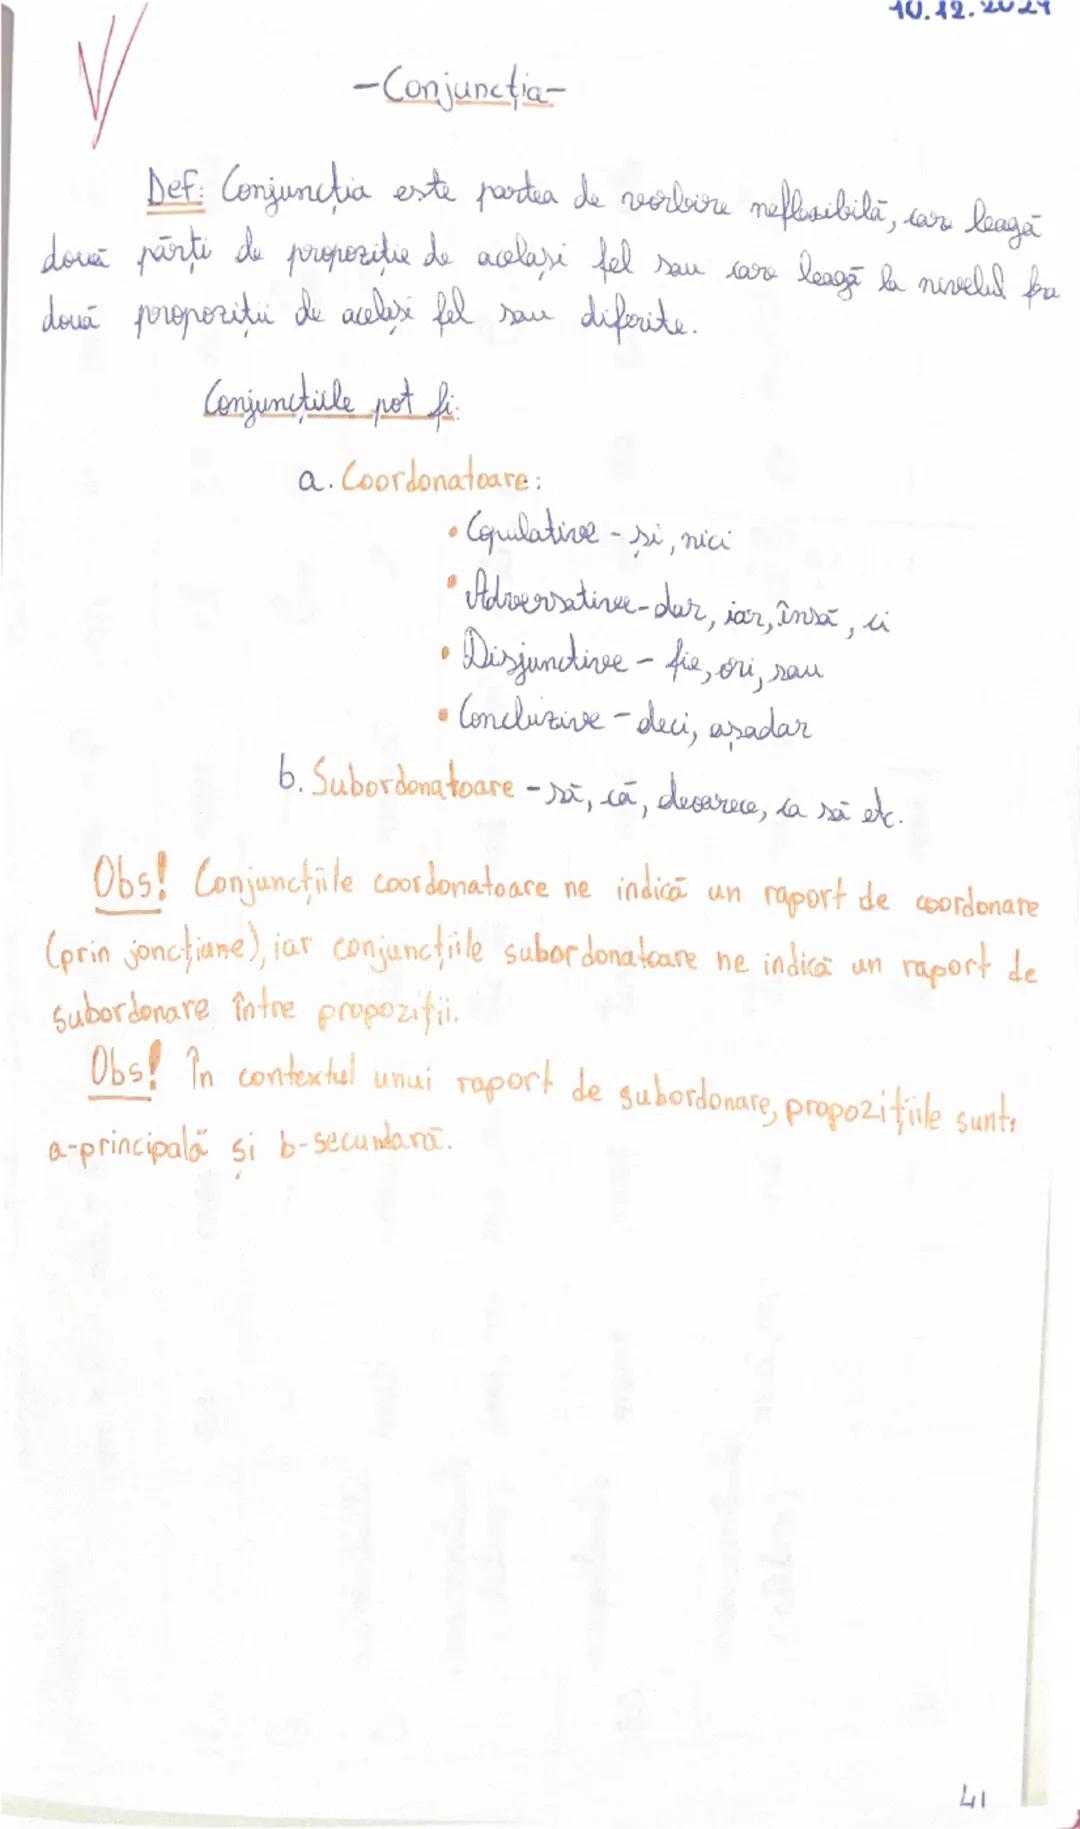 10.12.2024
-Conjuncția-
Def: Conjuncția este partea de vorbire neflexibilă, care leagă
două părți de propoziție de același fel sau care leagă la nivelul fra
două propoziții de același fel sau diferite.
Conjuncțiile pot fi:
a. Coordonatoare:
• Copulative - și, nici
• Adversative - dar, iar, însă, ci
• Disjunctive - fie, ori, sau
• Concluzive - deci, așadar
b. Subordonatoare - să, că, deoarece, ca să etc.
Obs! Conjuncțiile coordonatoare ne indică un raport de coordonare
(prin joncțiune), iar conjuncțiile subordonatoare ne indică un raport de
subordonare între propoziții.
Obs! În contextul unui raport de subordonare, propozițiile sunt:
a-principală și b-secundară.
41